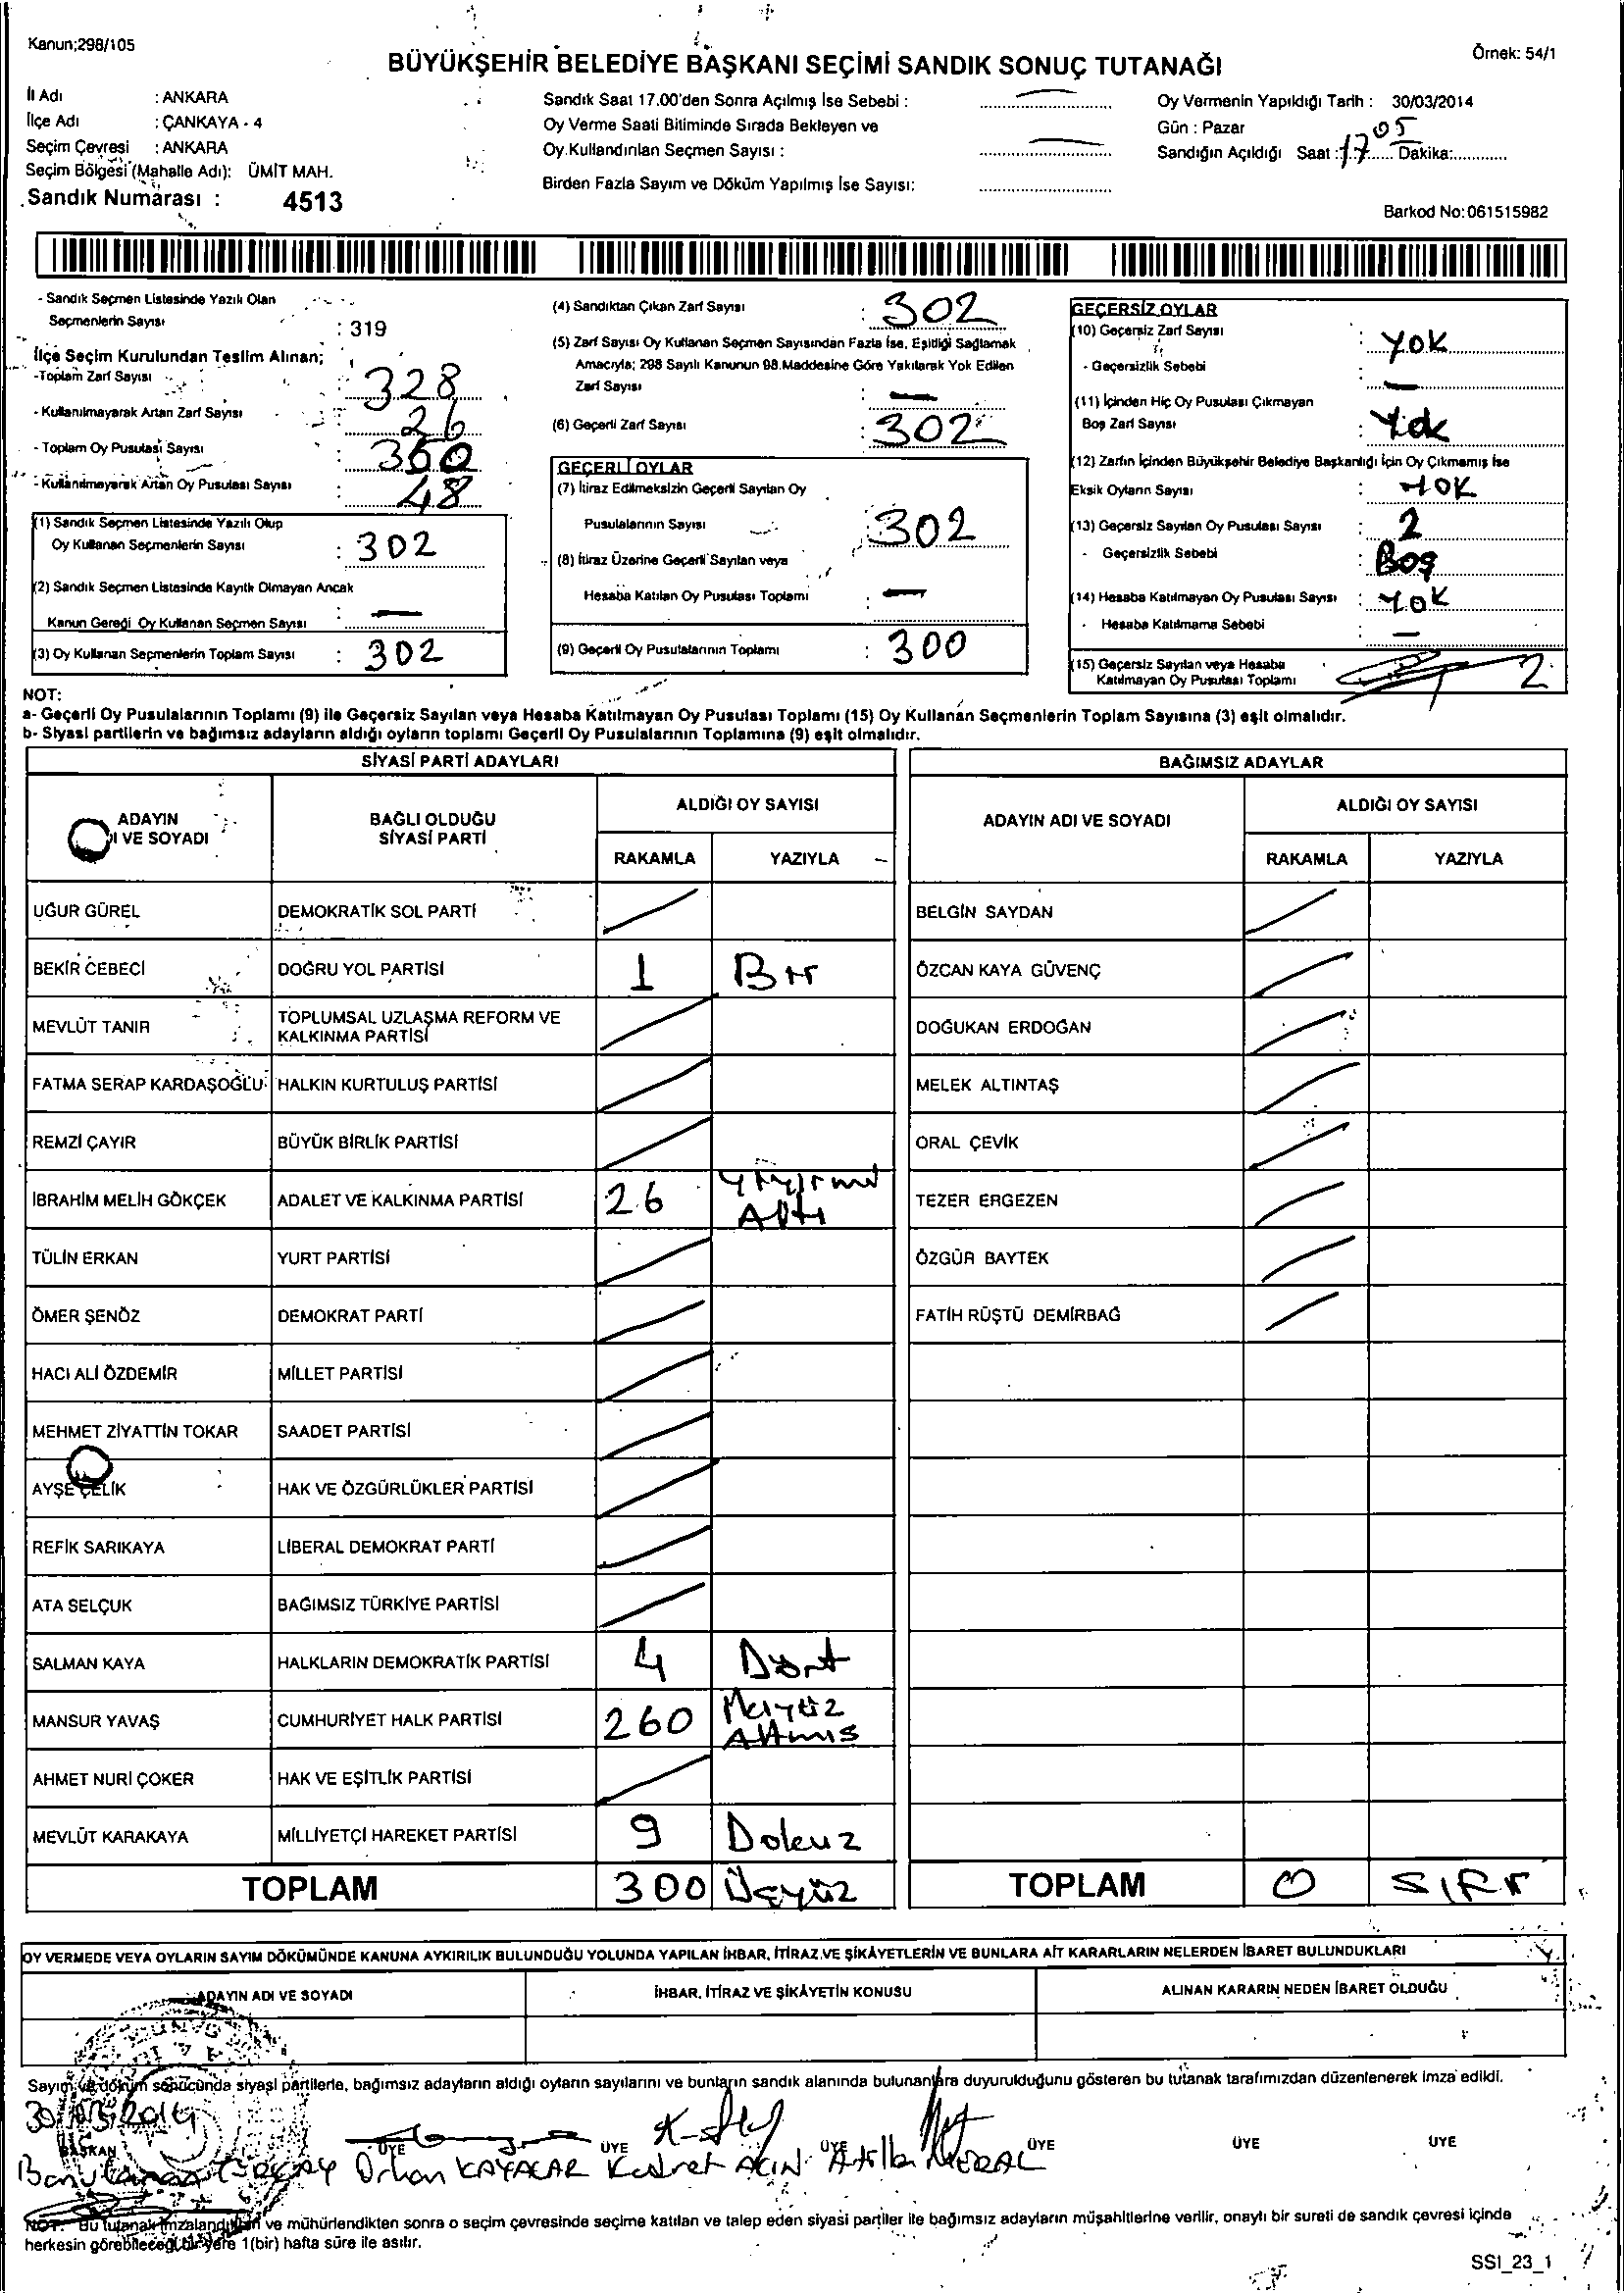 Kanun;298/105
Örnek: 54/1
BÜYÜKŞEHİR BELEDİYE BAŞKANI SEÇİMİ SANDIK SONUÇ TUTANAĞI
İl Adı : ANKARA
İlçe Adı : ÇANKAYA - 4
Seçim Çevresi : ANKARA
Seçim Bölgesi (Mahalle Adı): ÜMİT MAH.
Sandık Numarası : 4513
Sandık Saat 17.00'den Sonra Açılmış İse Sebebi : —
Oy Verme Saati Bitiminde Sırada Bekleyen ve
Oy Kullandırılan Seçmen Sayısı : —
Birden Fazla Sayım ve Döküm Yapılmış İse Sayısı:
Oy Vermenin Yapıldığı Tarih : 30/03/2014
Gün : Pazar
Sandığın Açıldığı Saat : 17 Dakika: 05
Barkod No:061515982
- Sandık Seçmen Listesinde Yazılı Olan
Seçmenlerin Sayısı : 319
İlçe Seçim Kurulundan Teslim Alınan;
-Toplam Zarf Sayısı : 328
- Kullanılmayarak Artan Zarf Sayısı : 26
- Toplam Oy Pusulası Sayısı : 350
- Kullanılmayarak Artan Oy Pusulası Sayısı : 48
(1) Sandık Seçmen Listesinde Yazılı Olup
Oy Kullanan Seçmenlerin Sayısı : 302
(2) Sandık Seçmen Listesinde Kayıtlı Olmayan Ancak
Kanun Gereği Oy Kullanan Seçmen Sayısı : —
(3) Oy Kullanan Seçmenlerin Toplam Sayısı : 302
(4) Sandıktan Çıkan Zarf Sayısı : 302
(5) Zarf Sayısı Oy Kullanan Seçmen Sayısından Fazla İse, Eşitliği Sağlamak
Amacıyla; 298 Sayılı Kanunun 98.Maddesine Göre Yakılarak Yok Edilen
Zarf Sayısı : —
(6) Geçerli Zarf Sayısı : 302
GEÇERLİ OYLAR
(7) İtiraz Edilmeksizin Geçerli Sayılan Oy
Pusulalarının Sayısı : 302
(8) İtiraz Üzerine Geçerli Sayılan veya
Hesaba Katılan Oy Pusulası Toplamı : —
(9) Geçerli Oy Pusulalarının Toplamı : 300
GEÇERSİZ OYLAR
(10) Geçersiz Zarf Sayısı : YOK
- Geçersizlik Sebebi : —
(11) İçinden Hiç Oy Pusulası Çıkmayan
Boş Zarf Sayısı : Yok
(12) Zarfın İçinden Büyükşehir Belediye Başkanlığı İçin Oy Çıkmamış İse
Eksik Oyların Sayısı : YOK
(13) Geçersiz Sayılan Oy Pusulası Sayısı : 2
- Geçersizlik Sebebi : Boş
(14) Hesaba Katılmayan Oy Pusulası Sayısı : YOK
- Hesaba Katılmama Sebebi : —
(15) Geçersiz Sayılan veya Hesaba
Katılmayan Oy Pusulası Toplamı : 2
NOT:
a- Geçerli Oy Pusulalarının Toplamı (9) ile Geçersiz Sayılan veya Hesaba Katılmayan Oy Pusulası Toplamı (15) Oy Kullanan Seçmenlerin Toplam Sayısına (3) eşit olmalıdır.
b- Siyasi partilerin ve bağımsız adayların aldığı oyların toplamı Geçerli Oy Pusulalarının Toplamına (9) eşit olmalıdır.
SİYASİ PARTİ ADAYLARI
ADAYIN
I VE SOYADI
BAĞLI OLDUĞU
SİYASİ PARTİ
ALDIĞI OY SAYISI
RAKAMLA YAZIYLA
UĞUR GÜREL DEMOKRATİK SOL PARTİ
BEKİR CEBECİ DOĞRU YOL PARTİSİ 1 Bir
MEVLÜT TANIR TOPLUMSAL UZLAŞMA REFORM VE
KALKINMA PARTİSİ
FATMA SERAP KARDAŞOĞLU HALKIN KURTULUŞ PARTİSİ
REMZİ ÇAYIR BÜYÜK BİRLİK PARTİSİ
İBRAHİM MELİH GÖKÇEK ADALET VE KALKINMA PARTİSİ 26 Yiyirmi
Altı
TÜLİN ERKAN YURT PARTİSİ
ÖMER ŞENÖZ DEMOKRAT PARTİ
HACI ALİ ÖZDEMİR MİLLET PARTİSİ
MEHMET ZİYATTİN TOKAR SAADET PARTİSİ
AYŞE ÇELİK HAK VE ÖZGÜRLÜKLER PARTİSİ
REFİK SARIKAYA LİBERAL DEMOKRAT PARTİ
ATA SELÇUK BAĞIMSIZ TÜRKİYE PARTİSİ
SALMAN KAYA HALKLARIN DEMOKRATİK PARTİSİ 4 Dört
MANSUR YAVAŞ CUMHURİYET HALK PARTİSİ 260
Altmış
AHMET NURİ ÇOKER HAK VE EŞİTLİK PARTİSİ
MEVLÜT KARAKAYA MİLLİYETÇİ HAREKET PARTİSİ 9 Dokuz
TOPLAM 300 Üçyüz
BAĞIMSIZ ADAYLAR
ADAYIN ADI VE SOYADI
ALDIĞI OY SAYISI
RAKAMLA YAZIYLA
BELGİN SAYDAN
ÖZCAN KAYA GÜVENÇ
DOĞUKAN ERDOĞAN
MELEK ALTINTAŞ
ORAL ÇEVİK
TEZER ERGEZEN
ÖZGÜR BAYTEK
FATİH RÜŞTÜ DEMİRBAĞ
TOPLAM 0 SIFIR
OY VERMEDE VEYA OYLARIN SAYIM DÖKÜMÜNDE KANUNA AYKIRILIK BULUNDUĞU YOLUNDA YAPILAN İHBAR, İTİRAZ VE ŞİKÂYETLERİN VE BUNLARA AİT KARARLARIN NELERDEN İBARET BULUNDUKLARI
ADAYIN ADI VE SOYADI İHBAR, İTİRAZ VE ŞİKÂYETİN KONUSU ALINAN KARARIN NEDEN İBARET OLDUĞU
Sayım ve döküm sonucunda siyasi partilerle, bağımsız adayların aldığı oyların sayılarını ve bunların sandık alanında bulunanlara duyurulduğunu gösteren bu tutanak tarafımızdan düzenlenerek imza edildi.
30/03/2014
BAŞKAN ÜYE ÜYE ÜYE ÜYE ÜYE ÜYE
Orhan KAYACAR Kudret AKIN Atilla MERAL
NOT: Bu tutanak imzalandıktan ve mühürlendikten sonra o seçim çevresinde seçime katılan ve talep eden siyasi partiler ile bağımsız adayların müşahitlerine verilir, onaylı bir sureti de sandık çevresi içinde
herkesin görebileceği bir yere 1(bir) hafta süre ile asılır.
SSI_23_1